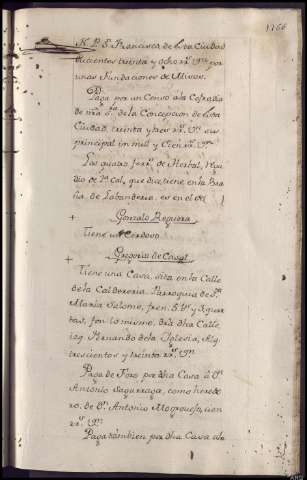 1766
N. P. S. Francisco de esta Ciudad
ducientos treinta y ocho rs. Vn. por
unas Fundaciones de Misas.
Paga por un Censo a la Cofradia
de nra. Sra. de la Concepcion de esta
Ciudad, treinta y tres rs. Vn. sus
principal in mill y Cien rs. Vn.
Las quatro ferrs. de Herbal,
que dice tiene en la
de Labanderia, es en el
+ Gonzalo Reguera
Tiene un Cerdoso
+ Gregorio de Casal
Tiene una Casa, sita en la Calle
de la Caldereria, Parroquia de Sta.
Maria Salome, fren. 5. vs. y 3 quar
tas, fon. lo mismo, dra. dha Calle,
izq. Fernando de la Iglesia, Alq.
trescientos y treinta rs. Vn.
Paga de Foro por dha Casa a Dn.
Antonio, como herede
ro de Dn. Antonio, cien
rs. Vn.
Paga tambien por dha Casa ala